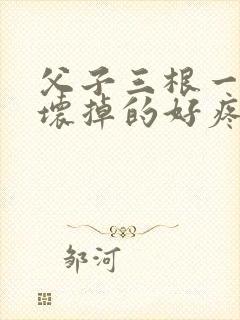 父子三根一
壞掉的好疼
邹河